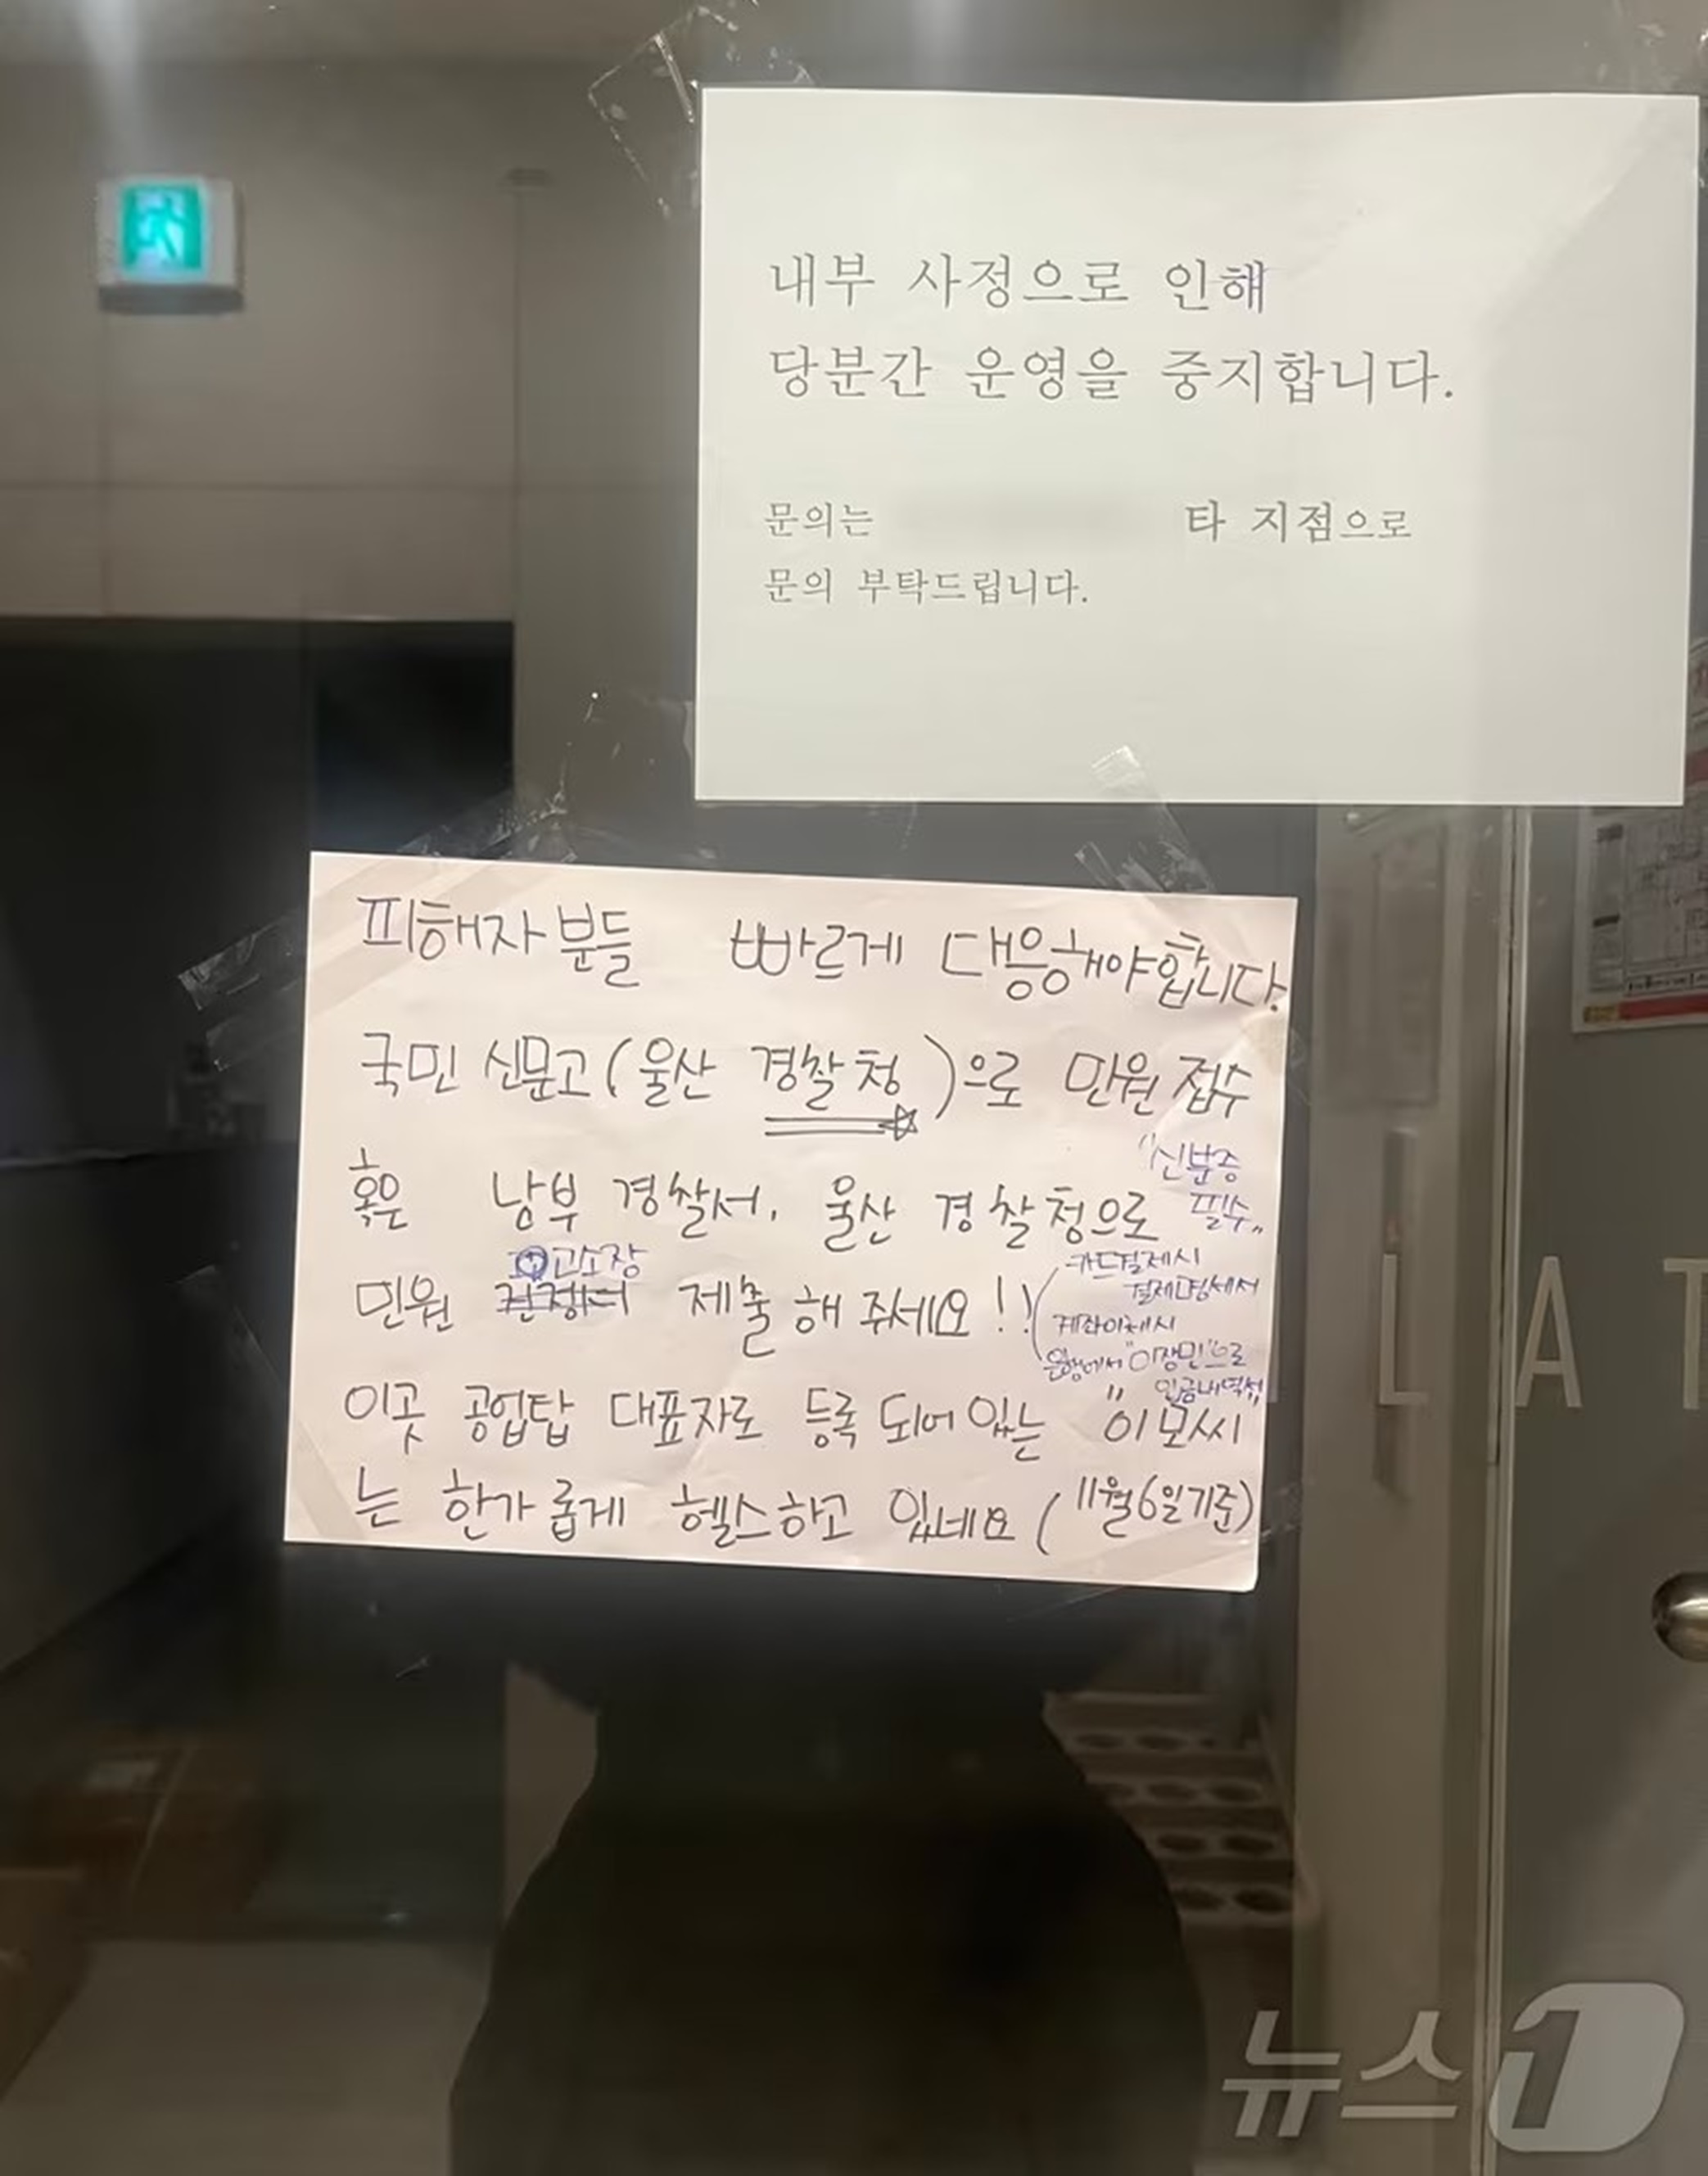 내부 사정으로 인해
당분간 운영을 중지합니다.
문의는 타 지점으로
문의 부탁드립니다.
피해자분들 빠르게 대응해야합니다.
국민 신문고(울산 경찰청)으로 민원 접수
"신분증
필수"
혹은 남부 경찰서, 울산 경찰청으로
고소장
민원 제출해 주세요!!
카드결제시
결제명세서
계좌이체시
은행에서 "이장민"으로
입금내역서
이곳 공업탑 대표자로 등록 되어 있는 "이모씨
는 한가롭게 헬스하고 있네요 (11월6일기준)
LAT
뉴스1